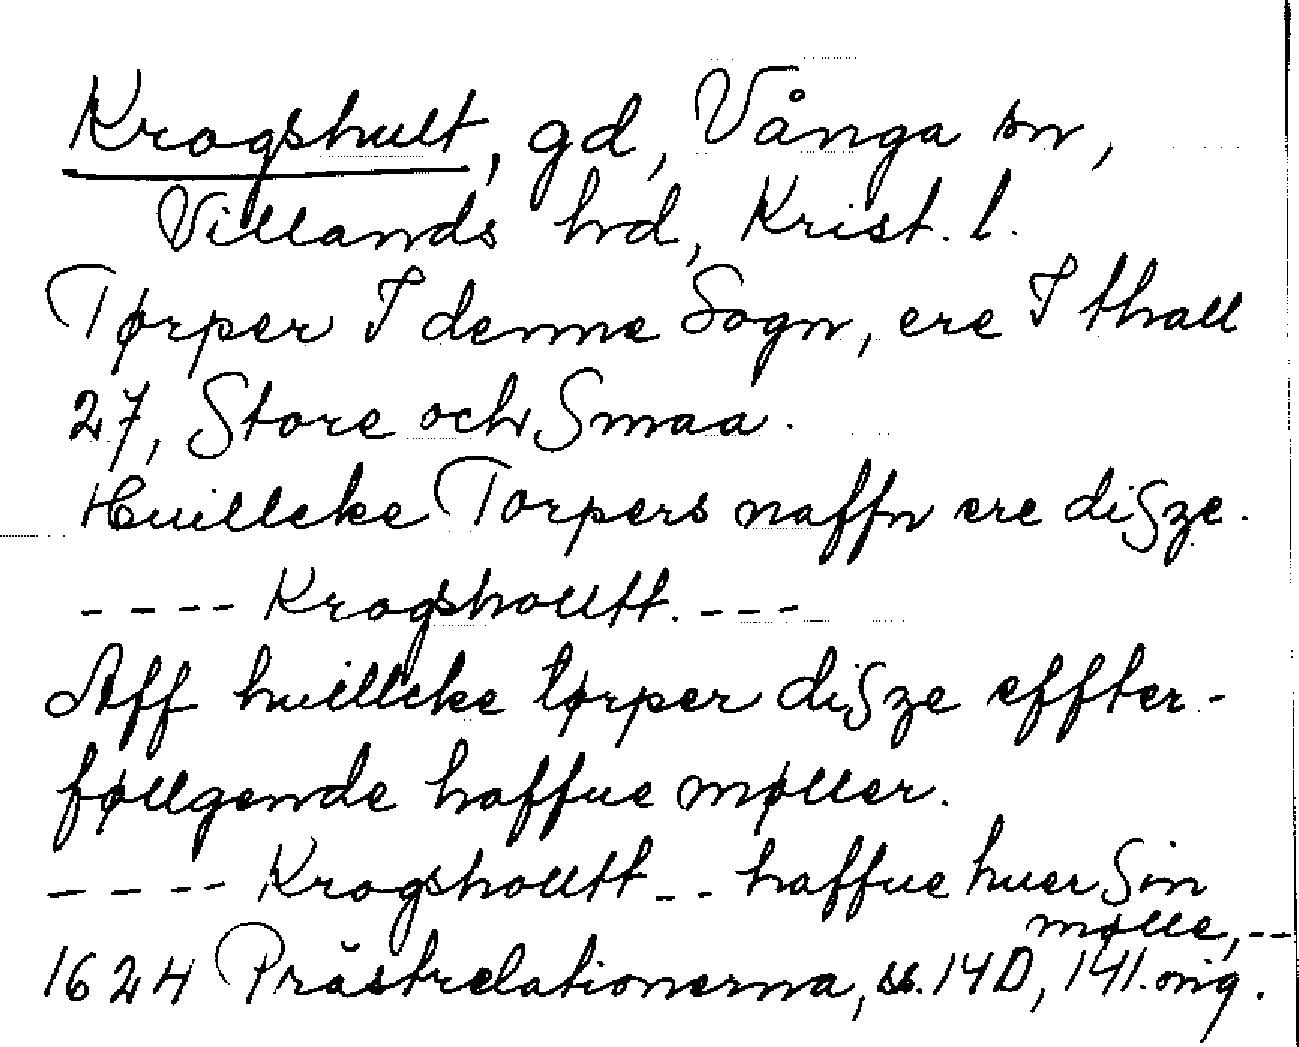 Krogshult, gd, Vånga sn,
Villands hd, Krist. l.
Tørper I denne Sogn, ere I thall
27, Store och Smaa.
Huillcke Torpers naffn ere diſze.
---- Krogshoultt. ---
Aff huillcke tørper diſze effter-
føllgende haffue møller.
---- Krogshoultt -- haffue huer Sin
mølle, --
1624 Prästrelationerna, s. 140, 141. orig.